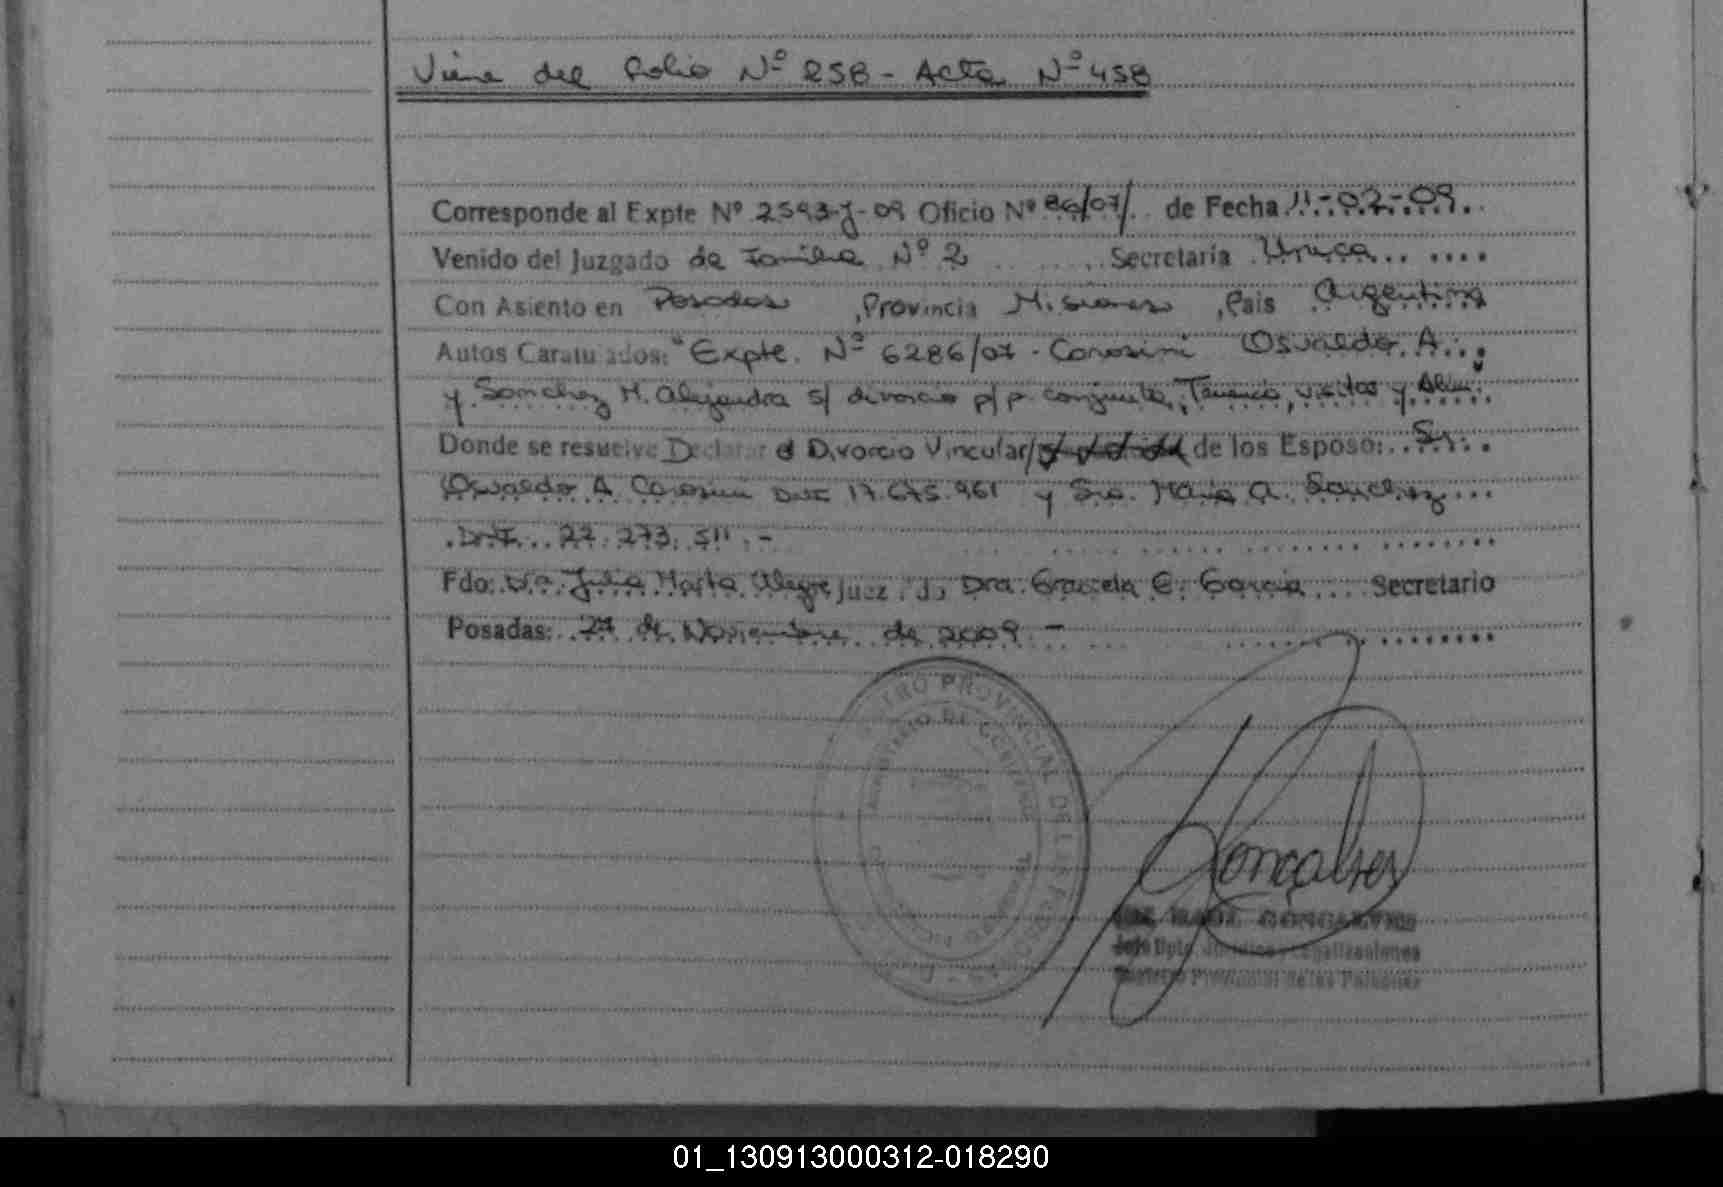 Viene del folio Nº 258 - Acta Nº 458
Corresponde al Expte Nº 2593-J-09 Oficio Nº 86/07/. de Fecha 11-02-09.
Venido del Juzgado de Familia Nº 2 Secretaría Unica
Con Asiento en Posadas , Provincia Misiones , Pais Argentina
Autos Caratulados: "Expte. Nº 6286/07 - Corosini Osvaldo A.
y Sanchez M. Alejandra s/ divorcio p/p. conjunta, Tenencia, visitas y Alim.
Donde se resuelve Declarar el Divorcio Vincular/ de los Esposo: Sr.
Osvaldo A. Corosini DNI 17.675.961 y Sra. Maria A. Sanchez
D.N.I. 22.273.511.-
Fdo: Dra. Julia Marta Alegre Juez . do Dra. Graciela E. Garcia Secretario
Posadas: 27 de Noviembre de 2009.-
REGISTRO PROVINCIAL DE LAS PERSONAS
MINISTERIO DE GOBIERNO
Gonçalves
RAUL GONCALVES
Jefe Dpto. Jurídico y Legalizaciones
Registro Provincial de las Personas
01_130913000312-018290